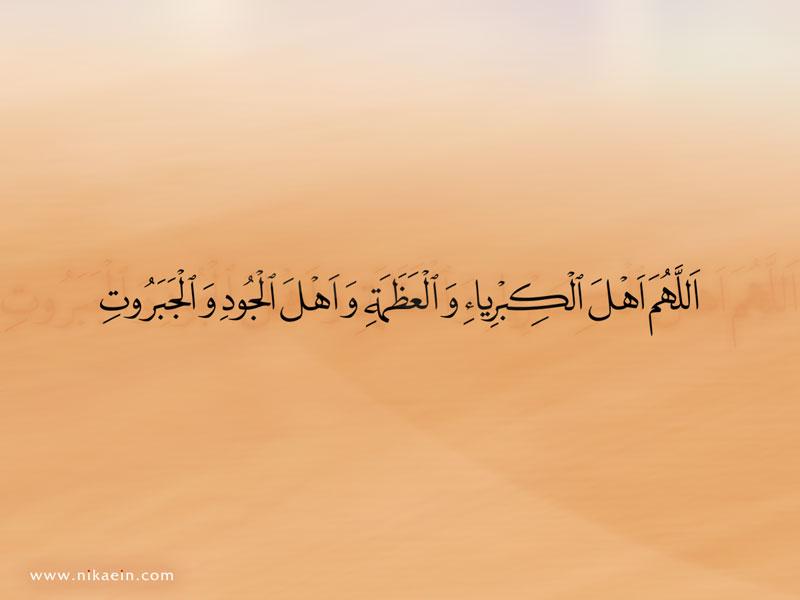 اَللَّهُمَ اَهْلَ ٱلْكِبْرِياءِ وَ ٱلْعَظَمَةِ وَ اَهْلَ ٱلْجُودِ وَ ٱلْجَبَرُوتِ
www.nikaein.com